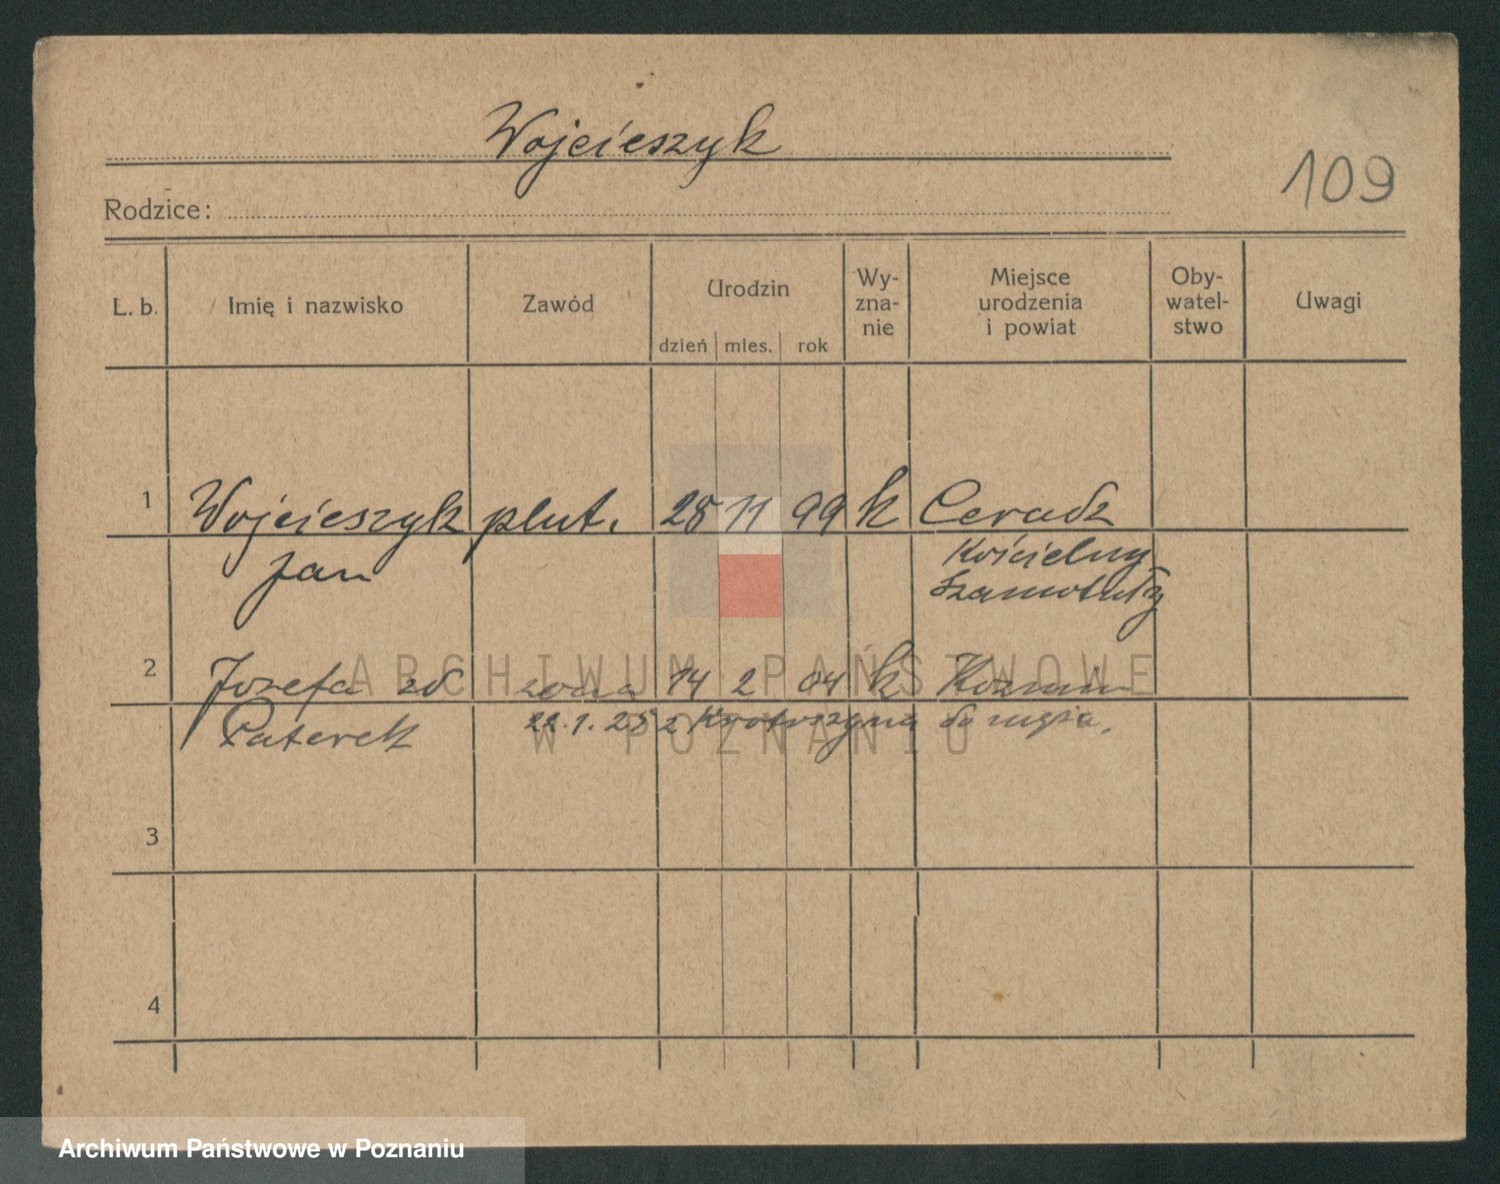 Wojcieszyk
109
Rodzice:
L. b. Imię i nazwisko Zawód Urodzin dzień mies. rok Wy-zna-nie Miejsce urodzenia i powiat Oby-watel-stwo Uwagi
1 Wojcieszyk plut. 28 11 99 k Ceradz
Jan Kościelny
Szamotuły
2 Józefa zd żona 14 2 04 k Koźmin
Paterek 22.1.25 z Krotoszyna do męża.
3
4
ARCHIWUM PAŃSTWOWE
W POZNANIU
Archiwum Państwowe w Poznaniu